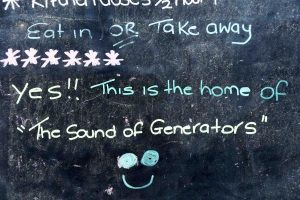 Eat in, OR Take away
Yes!! This is the home of
"The Sound of Generators"